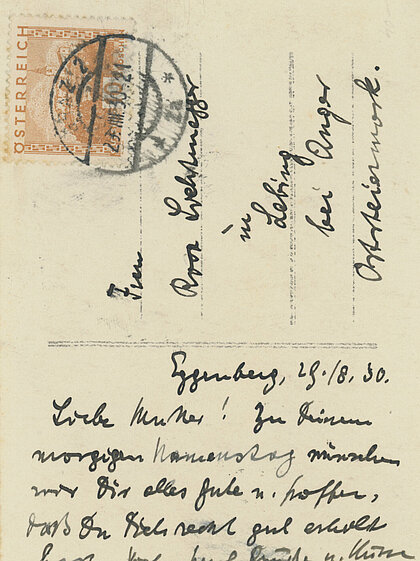 ÖSTERREICH
29.VIII.30 21
Frau
Rosa
in
Lebing
bei Anger
Oststeiermark.
Eggenberg, 29./8. 30.
Liebe Mutter! Zu Deinem
morgigen Namenstag wünschen
wir Dir alles Gute u. hoffen,
daß Du Dich recht gut erholt
hast. u.